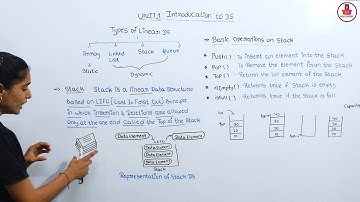 UNIT-1 Introduction to DS
Types of Linear DS
Array Linked List Stack Queue
Static
Dynamic
→ Stack Stack is a linear Data Structure
based on LIFO (Last In First Out) Principle
in which insertion & Deletions are allowed
only at the one end called the Top of the Stack
Data Element LIFO Data Element
Data Element
Data Element
Data Element
Stack
Representation of Stack DS
→ Basic Operations on Stack
Push() to insert an element into the Stack
Pop() to Remove the element from the Stack
Top() Return the top element of the Stack
isEmpty() Returns true if Stack is empty
isFull() Returns true if the Stack is full